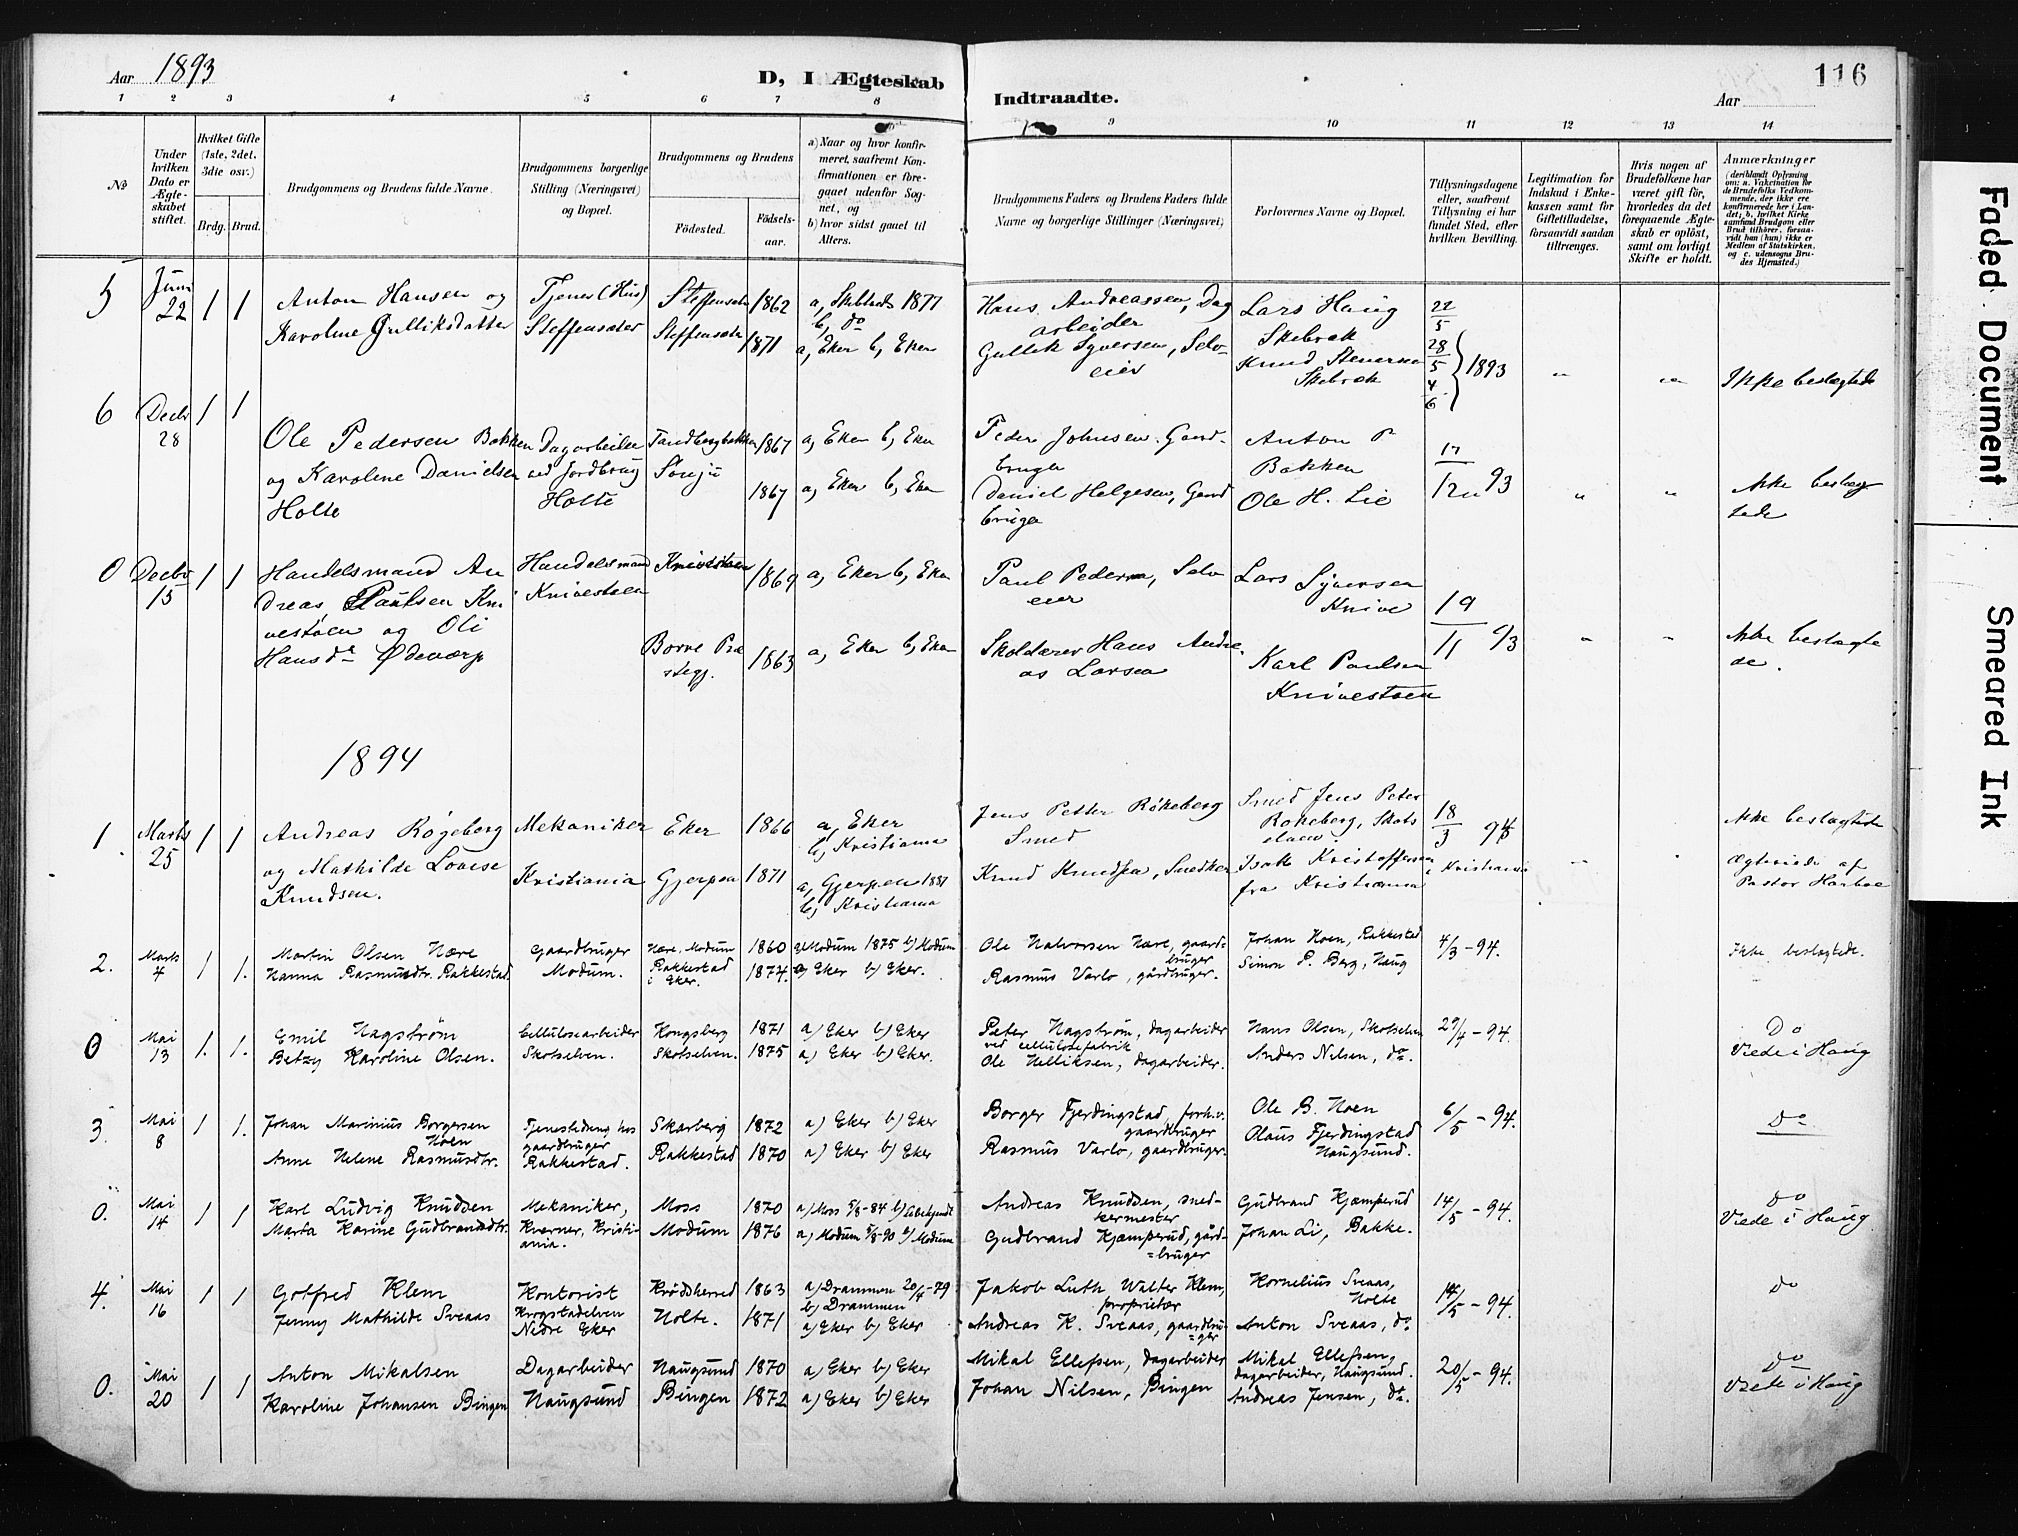 Aar 1893
D, I Ægteskab Indtraadte.
Aar
116
1 2 3 4 5 6 7 8 9 10 11 12 13 14
No
Under hvilken Dato er Ægteskabet stiftet.
Hvilket Gifte (1ste, 2det, 3die osv.)
Brdg. Brud.
Brudgommens og Brudens fulde Navne.
Brudgommens borgerlige Stilling (Næringsvei) og Bopæl.
Brudgommens og Brudens
Fødested. Fødselsaar.
a) Naar og hvor konfirmeret, saafremt Konfirmationen er foregaaet udenfor Sognet, og
b) hvor sidst gaaet til Alters.
Brudgommens Faders og Brudens Faders fulde Navne og borgerlige Stillinger (Næringsvei)
Forlovernes Navne og Bopæl.
Tillysningsdagene eller, saafremt Tillysning ei har fundet Sted, efter hvilken Bevilling.
Legitimation for Indskud i Enkekassen samt for Giftetilladelse, forsaavidt saadan tiltrænges.
Hvis nogen af Brudefolkene har været gift før, hvorledes da det foregaaende Ægteskab er opløst, samt om lovligt Skifte er holdt.
Anmærkninger (deriblandt Oplysning om: a. Vakcination for de Brudefolks Vedkommende, der ikke ere konfirmerede her i Landet; b. hvilket Kirkesamfund Brudgom eller Brud tilhører, forsaavidt han (hun) ikke er Medlem af Statskirken, og c. udensogns Brudes Hjemsted.)
5 Juni 22 1 1 Anton Hansen og Karoline Gulliksdatter
Tjener (Hus) Steffensæter
Steffensæter 1862
Steffensæter 1871
a, 1877 b, do
a, Eker b, Eker
Hans Andreassen, Dagarbeider
Gullik Syversen, Selveier
Lars Haug Skebræk
Knud Skebræk
22/5 28/5 4/6 } 1893 " " Ikke beslægtede
6 Decbr 28 1 1 Ole Pedersen Bakken og Karoline Danielsen Holte
Dagarbeider ved Jordbrug Holte
Tandbergbakken 1867
1867
a, Eker b, Eker
a, Eker b, Eker
Peder Johnsen, Gaardbruger
Daniel Helgesen, Gaardbruger
Anton P Bakken
Ole H. Lie
17/12 93 " " Ikke beslægtede
0 Decbr 15 1 1 Handelsmand Andreas Paulsen Knivestøen og Oli Hansdr Ødeværp
Handelsmand Knivestøen
Knivestøen 1869
Borre Præstegj. 1863
a, Eker b, Eker
a, Eker b, Eker
Paul Pedersen, Selveier
Skolelærer Hans Andreas Larsen
Lars Syversen Knive
Karl Paulsen Knivestøen
19/11 93 " " Ikke beslægtede.
1894
1. Marts 25 1 1 Andreas Røgeberg og Mathilde Lovise Knudsen.
Mekaniker Kristiania
Eker 1866
Gjerpen 1871
a, Eker b, Kristiania
a, Gjerpen 1887 b, Kristiania
Jens Petter Rökeberg Smed
Knud Knudsen, Snedker
Smed Jens Peter Rokeberg, Skotselven
Isak Kristoffersen fra Kristiania
18/3 94 i Kristiania
Ikke beslægtede
Ægteviede af Pastor Harboe
2. Marts 4 1 1. Martin Olsen Nære
Hanna Rasmusdtr. Rakkestad
Gaardbruger Modum.
Nære, Modum 1860
Rakkestad i Eker. 1874.
a) Modum 1875 b) Modum
a) Eker b) Eker.
Ole Halvorsen Nære, gaardbruger
Rasmus Varlo, gårdbruger.
Johan Hoen, Rakkestad
Simon P. Berg, Haug
4/3 – 94.
Ikke beslægtede.
0 Mai 13 1. 1. Emil Hagstrøm
Betzy Karoline Olsen.
Cellulosearbeider Skotselven.
Kongsberg 1871
Skotselven. 1875
a) Eker b) Eker
a) Eker b) Eker.
Peter Hagstrøm, dagarbeider ved cellulosefabrik
Ole Helliksen, dagarbeider.
Hans Olsen, Skotselven
Anders Nilsen, do.
29/4 – 94.
Do
Viede i Haug
3. Mai 8 1 1. Johan Marinius Borgersen Hoen
Anne Helene Rasmusdtr.
Tjenestedreng hos gaardbruger Rakkestad.
Skarberg 1872
Rakkestad 1870
a) Eker b) Eker
a) Eker b) Eker
Borger Fjerdingstad, forhv. gaardbruger
Rasmus Varlo, gaardbruger.
Ole B. Hoen
Olaus Fjerdingstad Haugsund.
6/5 – 94.
Do
0. Mai 14 1 1 Karl Ludvig Knudsen
Marta Karine Gudbrandsdtr.
Mekaniker, Kværner, Kristiania.
Moss 1870
Modum 1876
a) Moss 5/8-84 b) Ubekjendt
a) Modum 5/8-90 b) Modum
Andreas Knudsen, snedkermester
Gudbrand Kjæmperud, gårdbruger
Gudbrand Kjæmperud
Johan Li, Bakke.
14/5 – 94.
Do
Viede i Haug
4. Mai 16 1 1 Gotfred Klem
Jenny Mathilde Sveaas
Kontorist Krogstadelven Nedre Eker
Krödsherred 1863
Holte. 1871
a) Drammen 20/4-79 b) Drammen
a) Eker b) Eker
Jakob Luth Walter Klem, proprietær
Andreas K. Sveaas, gaardbruger
Kornelius Sveaas, Holte
Anton Sveaas, do
14/5 – 94.
do
0. Mai 20 1 1 Anton Mikalsen
Karoline Johansen Bingen
Dagarbeider Haugsund
Haugsund 1870
Bingen 1872
a) Eker b) Eker
a) Eker b) Eker
Mikal Ellefsen, dagarbeider
Johan Nilsen, Bingen
Mikal Ellefsen, dagarbeider, Haugsund.
Andreas Jensen, do.
20/5 – 94.
Do
Viede i Haug
Faded Document
Smeared Ink